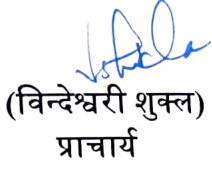 (विन्देश्वरी शुक्ल)
प्राचार्य